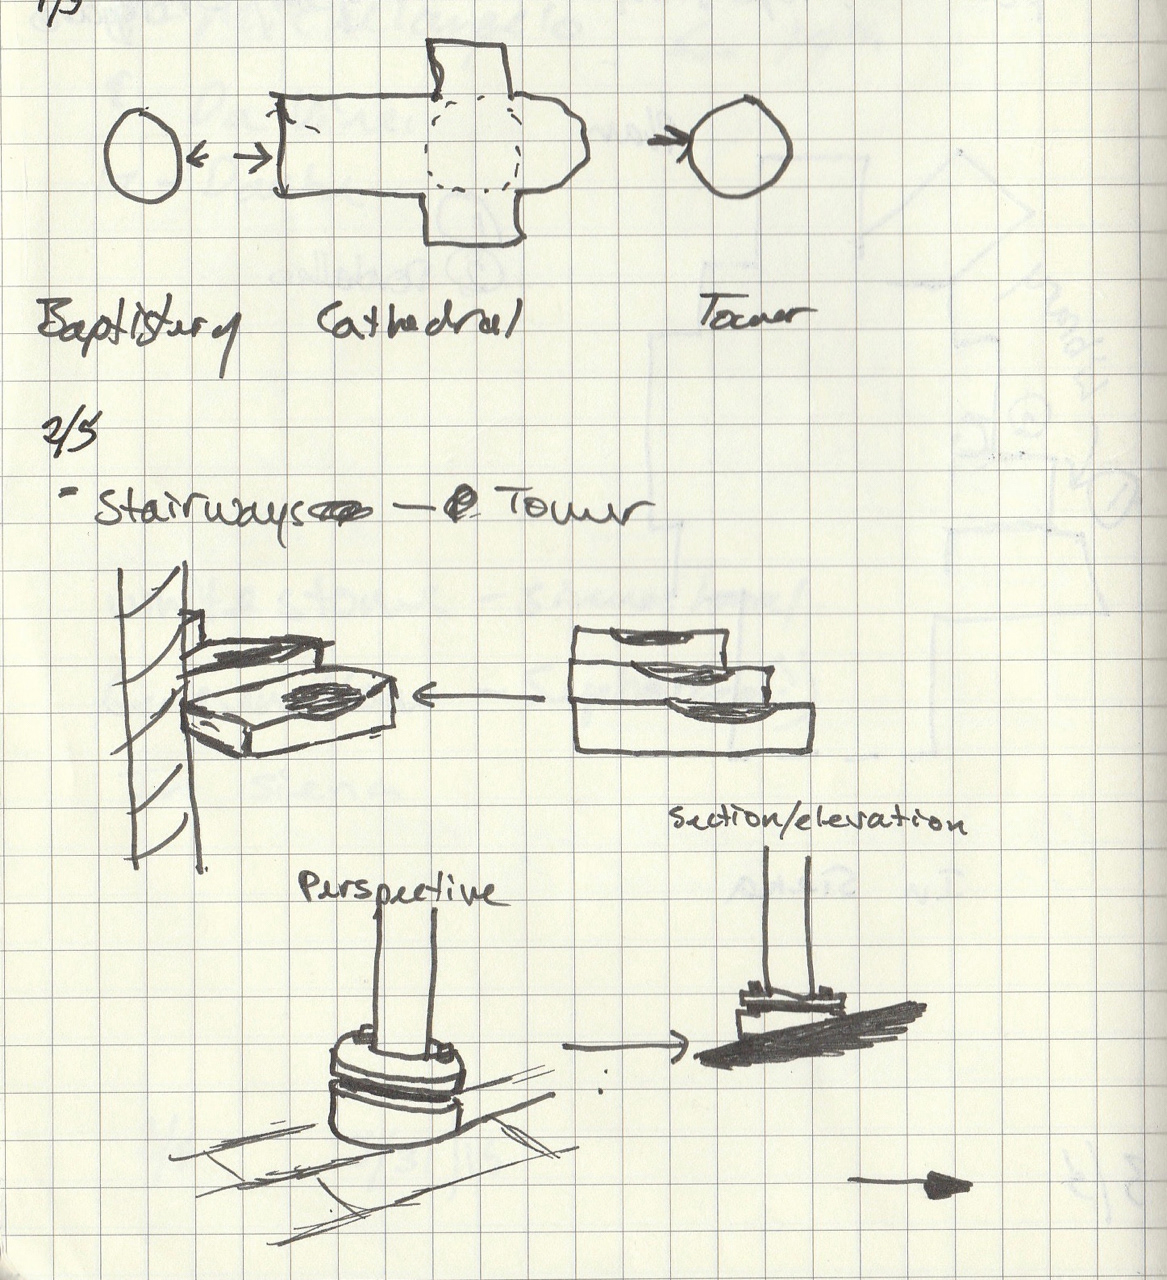 1/5
Baptistery Cathedral Tower
2/5
- Stairways — Tower
section/elevation
Perspective